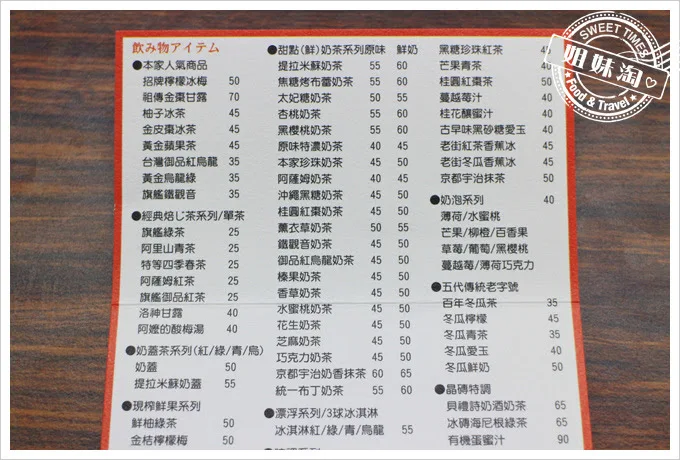 飲み物アイテム
●本家人氣商品
招牌檸檬冰梅 50
祖傳金棗甘露 70
柚子冰茶 45
金皮棗冰茶 45
黃金蘋果茶 45
台灣御品紅烏龍 35
黃金烏龍綠 35
旗艦鐵觀音 35
●經典焙じ茶系列/單茶
旗艦綠茶 25
阿里山青茶 25
特等四季春茶 25
阿薩姆紅茶 25
旗艦御品紅茶 25
洛神甘露 40
阿嬤的酸梅湯 40
●奶蓋茶系列(紅/綠/青/烏)
奶蓋 50
提拉米蘇奶蓋 55
●現榨鮮果系列
鮮柚綠茶 50
金桔檸檬梅 50
●甜點(鮮)奶茶系列原味 鮮奶
提拉米蘇奶茶 55 60
焦糖烤布蕾奶茶 55 60
太妃糖奶茶 50 55
杏桃奶茶 55 60
黑櫻桃奶茶 55 60
原味特濃奶茶 40 45
本家珍珠奶茶 45 50
阿薩姆奶茶 40 45
沖繩黑糖奶茶 45 50
桂圓紅棗奶茶 45 50
薰衣草奶茶 50 55
鐵觀音奶茶 45 50
御品紅烏龍奶茶 45 50
榛果奶茶 45 50
香草奶茶 45 50
水蜜桃奶茶 45 50
花生奶茶 45 50
芝麻奶茶 45 50
巧克力奶茶 45 50
京都宇治奶香抹茶 60 65
統一布丁奶茶 55 60
●漂浮系列/3球冰淇淋
冰淇淋紅/綠/青/烏龍 55
黑糖珍珠紅茶 45
芒果青茶 40
桂圓紅棗茶 50
蔓越莓汁 40
桂花釀蜜汁 40
古早味黑砂糖愛玉 40
老街紅茶香蕉冰 45
老街冬瓜香蕉冰 45
京都宇治抹茶 50
●奶泡系列 40
薄荷/水蜜桃
芒果/柳橙/百香果
草莓/葡萄/黑櫻桃
蔓越莓/薄荷巧克力
●五代傳統老字號
百年冬瓜茶 35
冬瓜檸檬 45
冬瓜青茶 35
冬瓜愛玉 40
冬瓜鮮奶 50
●晶磚特調
貝禮詩奶酒奶茶 65
冰磚海尼根綠茶 65
有機蛋蜜汁 90
SWEET TIMES
姐妹淘
Food & Travel